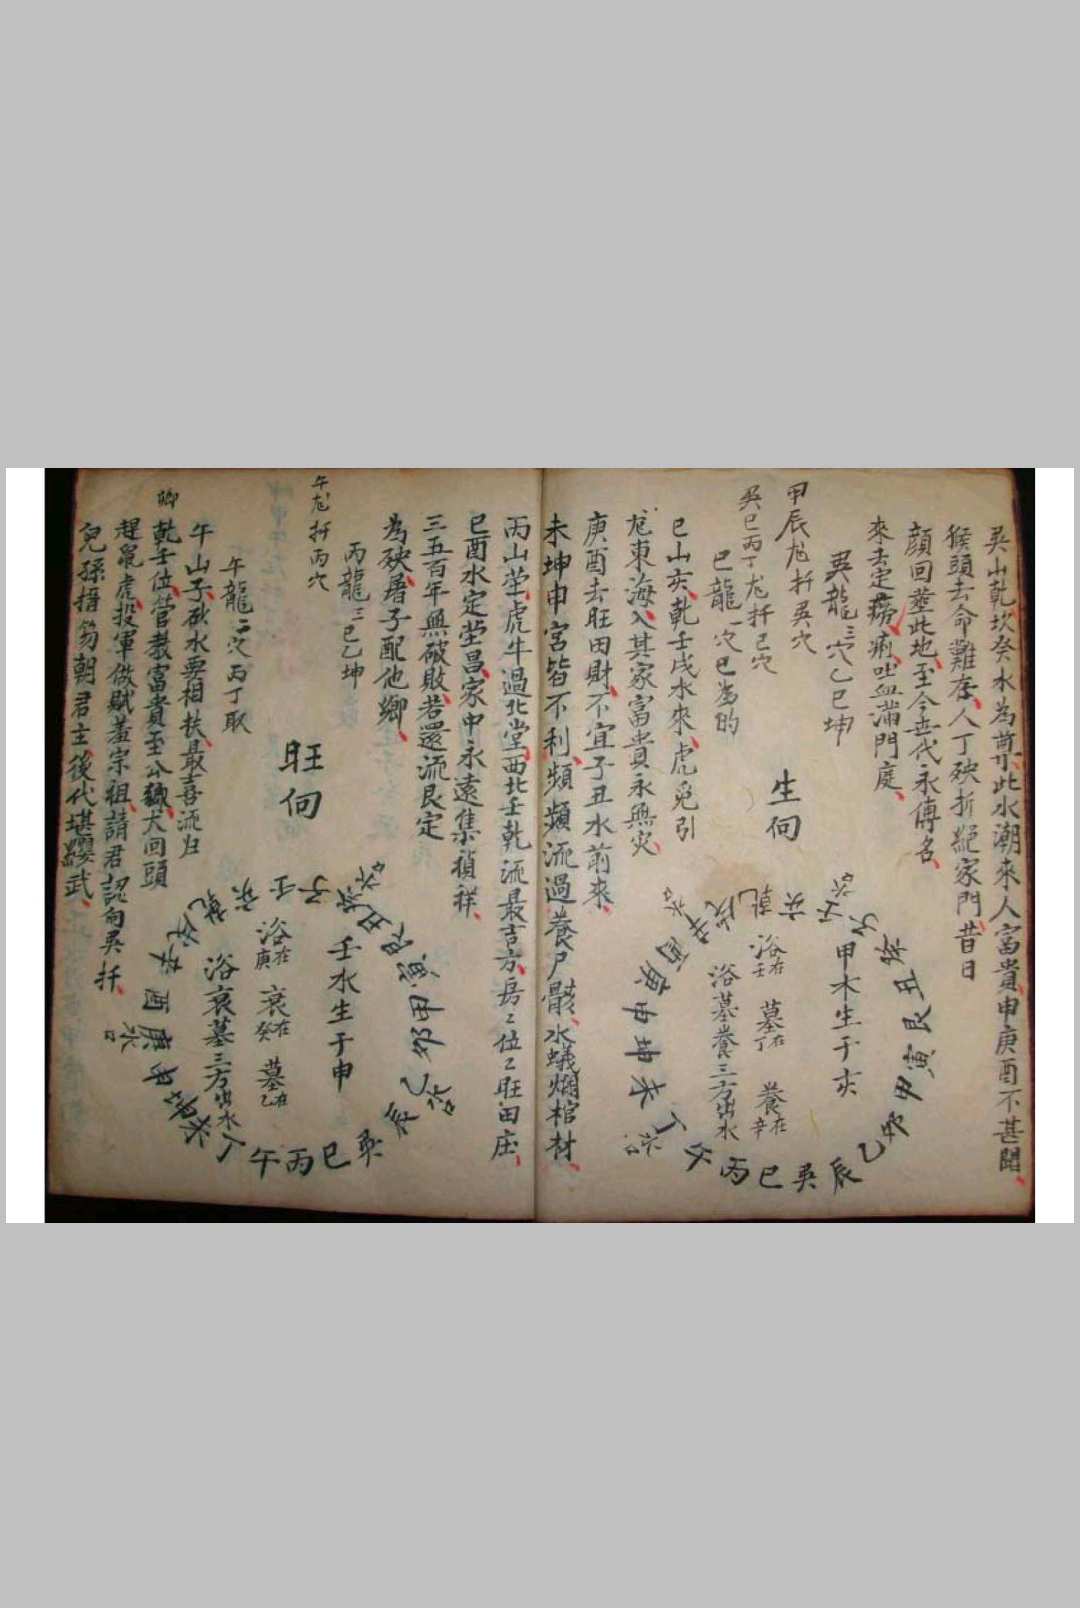 吳山乾坎癸水為尊此水潮來人富貴申庚酉不甚聞
猴頭去命難存人丁殃折絕家門昔日
顔回塟此地至今丗代永傳名
來去定癆痢吐血滿門庭
吳龍三穴乙巳坤
甲辰尨扦吳穴
吳巳丙丁尨扦巳穴
巳龍一穴巴為的
生向
巳山亥乾壬戌水來虎兎引
尨東海入其家富貴永無灾
庚酉去旺田財不宜子丑水前來
未坤申宮皆不利頻頻流過養尸骸水蟻爛棺材
甲木生于亥
浴在壬
墓在丁
養在辛
浴墓養三方出水
壬子癸丑艮寅甲卯乙辰吳巳丙午丁未坤申庚酉辛戌乾亥
丙山塋虎牛過北堂西北壬乾流最吉方房房位位旺田庄
巳酉水定塋昌家中永遠集禎祥
三五百年無破敗若還流艮定
為殃屠子配他鄉
丙龍三巳乙坤
午尨扦丙穴
旺向
午龍二穴丙丁取
午山子砍水要相扶最喜流归
乾壬位當教富貴至公卿犬回頭
趕鼠虎投軍做賦羞宗祖請君認向吳扦
兒孫搢笏朝君主後代堪纓武
壬水生于申
浴在庚
衰在癸
墓在乙
浴衰墓三方出水
壬子癸丑艮寅甲卯乙辰吳巳丙午丁未坤申庚酉辛戌乾亥